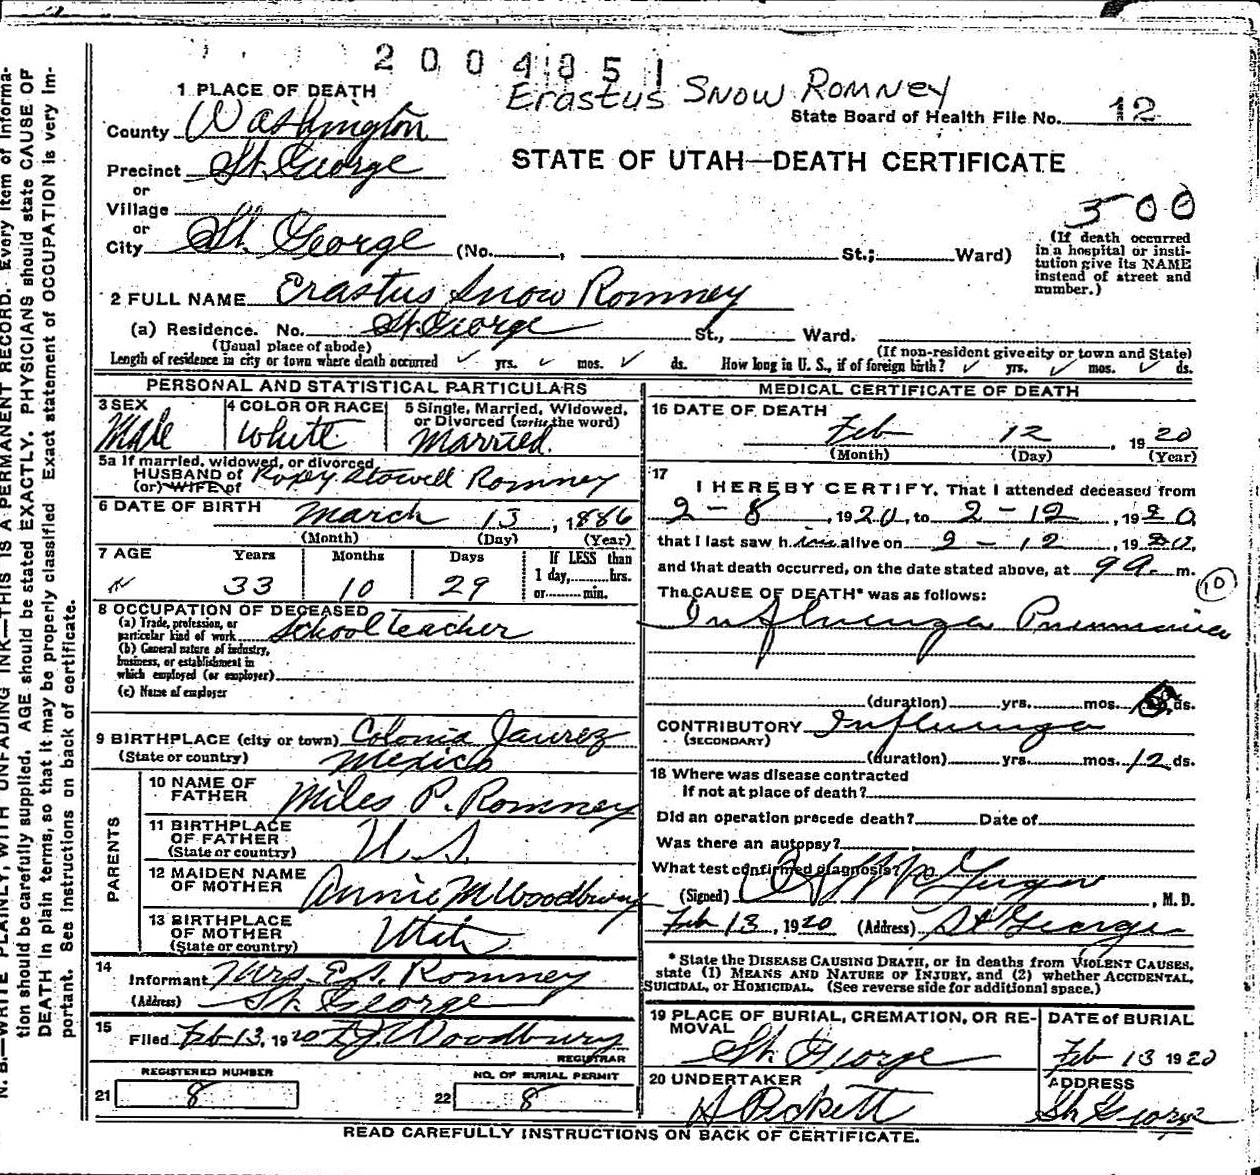 2004851
Erastus Snow Romney
State Board of Health File No. 12
STATE OF UTAH—DEATH CERTIFICATE
1 PLACE OF DEATH
County Washington
Precinct St. George
or
Village
or
City St. George (No. , St.; Ward)
500
(If death occurred
in a hospital or insti-
tution give its NAME
instead of street and
number.)
2 FULL NAME Erastus Snow Romney
(a) Residence. No. St. George St., Ward.
(Usual place of abode) (If non-resident give city or town and State)
Length of residence in city or town where death occurred ✓ yrs. ✓ mos. ✓ ds. How long in U. S., if of foreign birth? ✓ yrs. ✓ mos. ✓ ds.
PERSONAL AND STATISTICAL PARTICULARS
3 SEX
Male
4 COLOR OR RACE
White
5 Single, Married, Widowed,
or Divorced (write the word)
Married.
5a If married, widowed, or divorced
HUSBAND of
(or) WIFE of
Stowell Romney
6 DATE OF BIRTH March 13, 1886
(Month) (Day) (Year)
7 AGE Years Months Days If LESS than
1 day, hrs.
or min.
33 10 29
8 OCCUPATION OF DECEASED
(a) Trade, profession, or
particular kind of work School teacher
(b) General nature of industry,
business, or establishment in
which employed (or employer)
(c) Name of employer
9 BIRTHPLACE (city or town) Colonia Jaurez
(State or country) Mexico
PARENTS
10 NAME OF
FATHER Miles P. Romney
11 BIRTHPLACE
OF FATHER
(State or country) U. S.
12 MAIDEN NAME
OF MOTHER Annie M Woodbury
13 BIRTHPLACE
OF MOTHER
(State or country) Utah
14
Informant Mrs. E. S. Romney
(Address) St. George
15
Filed Feb 13, 1920 Woodbury
REGISTRAR
REGISTERED NUMBER
21 8
NO. OF BURIAL PERMIT
22 8
MEDICAL CERTIFICATE OF DEATH
16 DATE OF DEATH
Feb 12, 1920
(Month) (Day) (Year)
17
I HEREBY CERTIFY, That I attended deceased from
2-8, 1920, to 2-12, 1920,
that I last saw him alive on 2-12, 1920,
and that death occurred, on the date stated above, at 9 a. m.
The CAUSE OF DEATH* was as follows:
10
Influenza Pneumonia
(duration) yrs. mos. ds.
CONTRIBUTORY Influenza
(SECONDARY)
(duration) yrs. mos. 12 ds.
18 Where was disease contracted
if not at place of death?
Did an operation precede death? Date of
Was there an autopsy?
What test confirmed diagnosis?
(Signed) , M. D.
Feb 13, 1920 (Address) St George
* State the DISEASE CAUSING DEATH, or in deaths from VIOLENT CAUSES,
state (1) MEANS AND NATURE OF INJURY, and (2) whether ACCIDENTAL,
SUICIDAL, or HOMICIDAL. (See reverse side for additional space.)
19 PLACE OF BURIAL, CREMATION, OR RE-
MOVAL
St. George
DATE of BURIAL
Feb 13 1920
20 UNDERTAKER
Pickett
ADDRESS
St. George
READ CAREFULLY INSTRUCTIONS ON BACK OF CERTIFICATE.
N. B.—WRITE PLAINLY, WITH UNFADING INK—THIS IS A PERMANENT RECORD. Every item of informa-
tion should be carefully supplied. AGE should be stated EXACTLY. PHYSICIANS should state CAUSE OF
DEATH in plain terms, so that it may be properly classified. Exact statement of OCCUPATION is very im-
portant. See instructions on back of certificate.